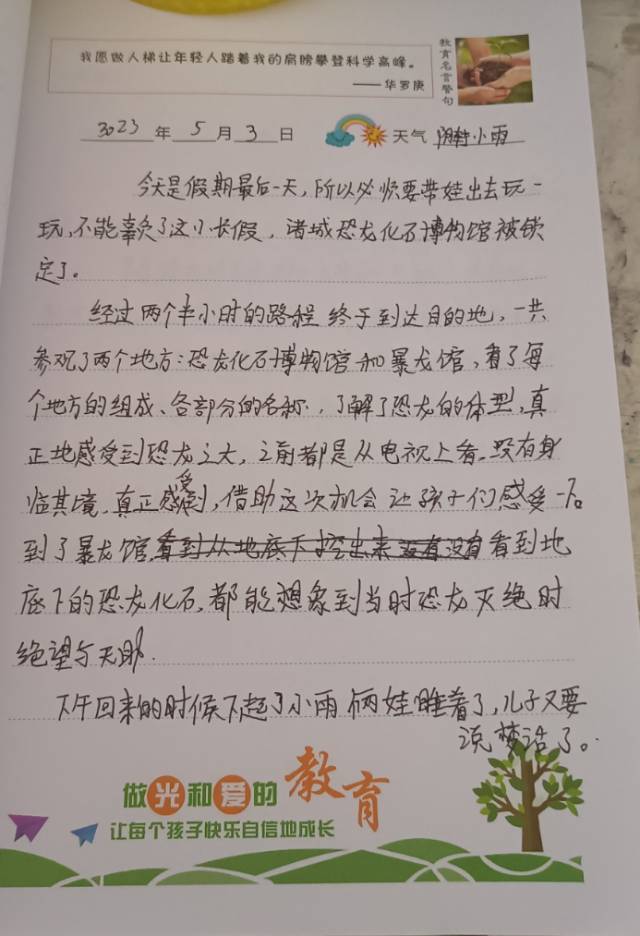 我愿做人梯让年轻人踏着我的肩膀攀登科学高峰。
——华罗庚
教育名言警句
3023 年 5 月 3 日 天气 阴转小雨
今天是假期最后一天，所以必须要带娃出去玩一
玩，不能辜负了这小长假，诸城恐龙化石博物馆被锁
定了。
经过两个半小时的路程 终于到达目的地，一共
参观了两个地方：恐龙化石博物馆和暴龙馆，看了每
个地方的组成、各部分的名称，了解了恐龙的体型，真
正地感受到恐龙之大，之前都是从电视上看，没有身
临其境，真正感受到，借助这次机会 让孩子们感受一下。
到了暴龙馆，看到从地底下挖出来 没有没有 看到地
底下的恐龙化石，都能想象到当时恐龙灭绝时
绝望与无助．
下午回来的时候下起了小雨 俩娃睡着了，儿子又要
说梦话了。
做光和爱的教育
让每个孩子快乐自信地成长